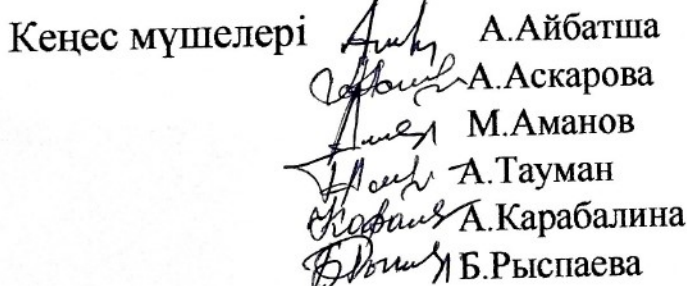 Кеңес мүшелері А.Айбатша
А.Аскарова
М.Аманов
А.Тауман
А.Карабалина
Б.Рыспаева